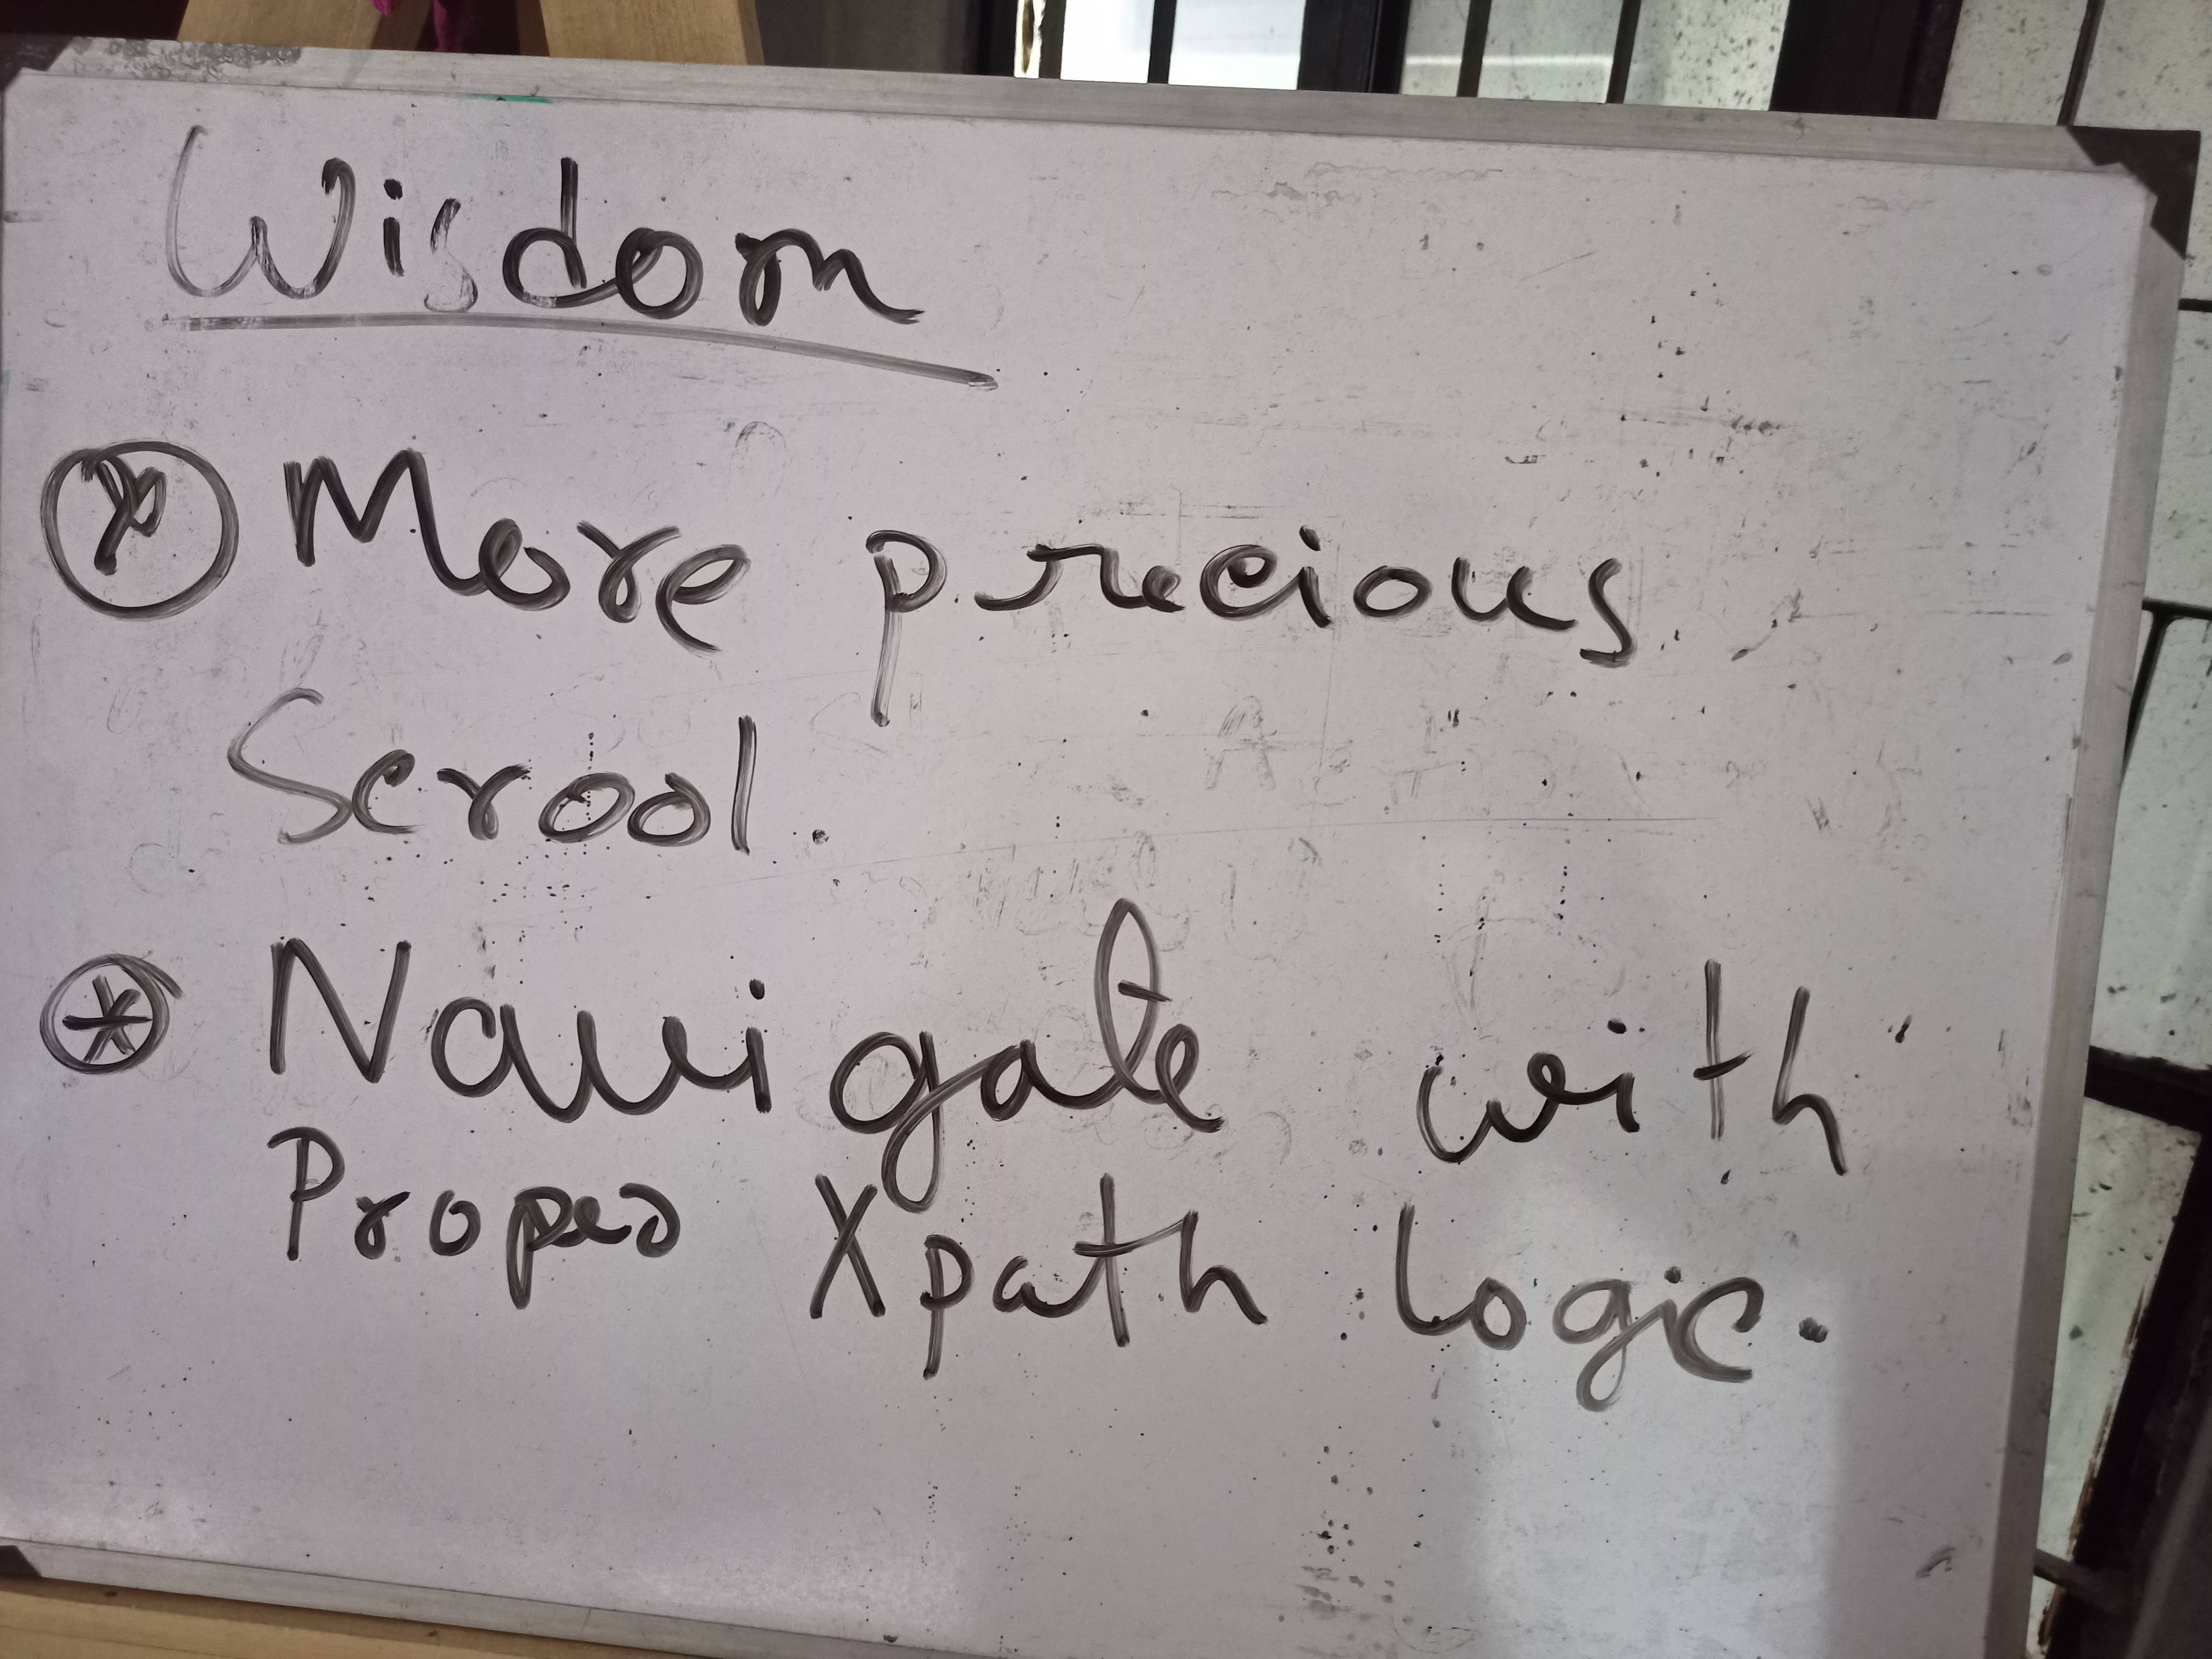 Wisdom
* More precious
Scrool.
* Navigate with
Proper Xpath Logic.